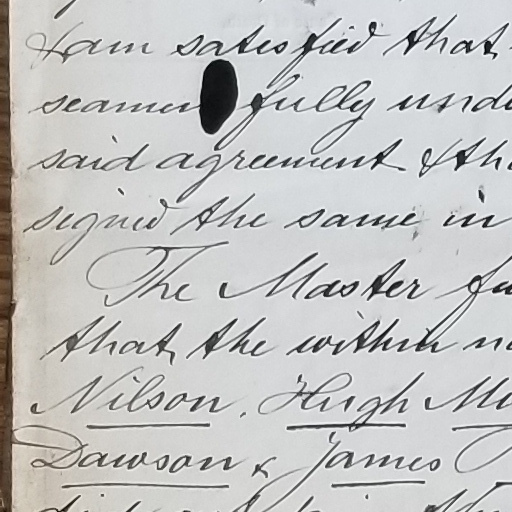 & am satisfied that
seamen fully unde
said agreement & tha
signed the same in
The Master fu
that the within n
Nilson, Hugh Mu
Dawson & James